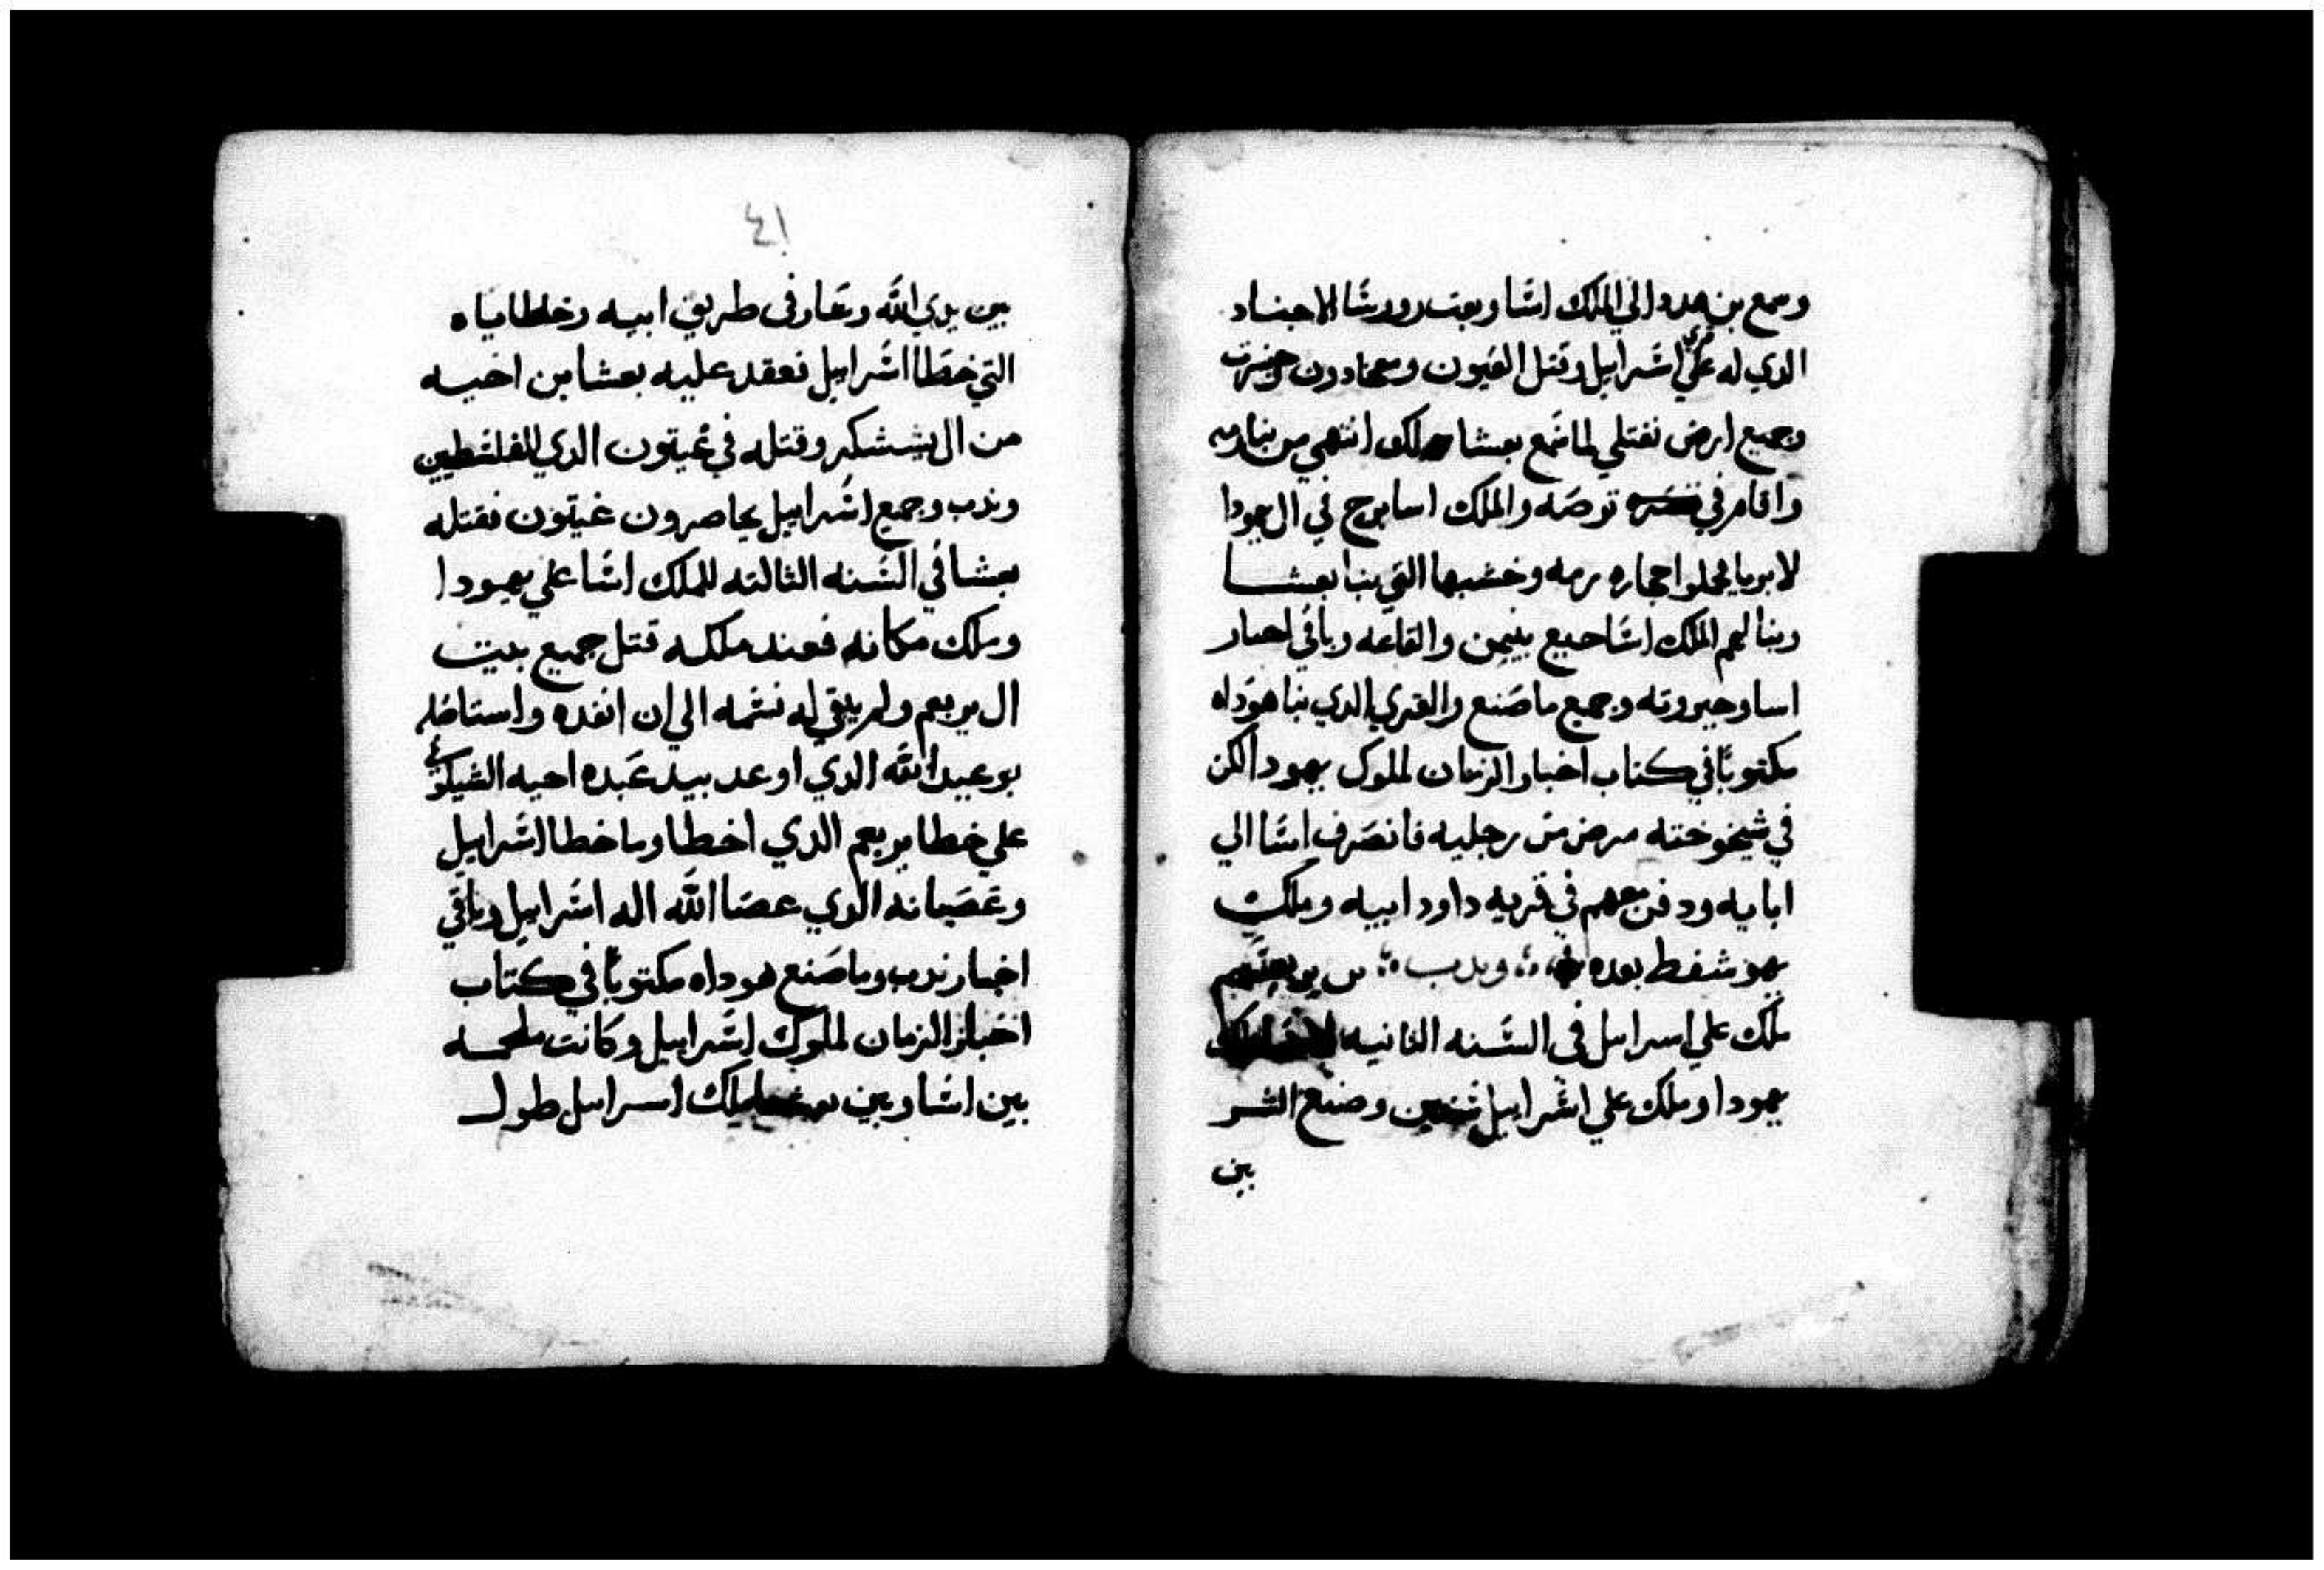 وسمع بن هدد الي الملك اسا وبعت روسا الاجناد
الدي له علي قري اسراييل وقتل العيون
وجميع ارض نفتلي لما سمع بعشا انتهي من بنا رمه
واقام في توصه والملك اسا برح في ال يهودا
لابريا يحملوا حجاره رمه وخشبها التي بنا بعشا
وبنا لهم الملك اسا جبع بنيمن والقاعه وباقي اخبار
اسا وجبروته وجميع ما صنع والقري الدي بنا هوداه
مكتوبا في كتاب اخبار الزمان لملوك يهودا لكن
في شيخوخته مرض من رجليه فانصرف اسا الي
ابايه ودفن معهم في قريه داود ابيه وملك
يهوشفط بعده وندب بن يوربعم
ملك علي اسراىىل في السنه الثانيه
يهودا وملك علي اسراييل سنتين وصنع الشر
بين
٤١
بين يدي الله وسار في طريق ابيه وخطاياه
التي خطا اسراييل فعقد عليه بعشا بن اخيه
من ال يششكر وقتله في غبتون الدي للفلسطيين
وندب وجميع اسراييل يحاصرون غبتون فقتله
بعشا في السنه الثالته للملك اسا علي يهودا
وملك مكانه فعند ملكه قتل جميع بيت
ال يربعم ولم يبقي له نسمه الي ان انفده واستاصله
بوعيد الله الدي اوعد بيد عبده احيه الشيلوني
علي خطا يربعم الدي اخطا وما خطا اسراييل
وعصيانه الدي عصا الله اله اسراييل وباقي
اخبار ندب وما صنع هوداه مكتوبا في كتاب
اخبار الزمان لملوك اسراييل وكانت ملحمه
بين اسا وبين بعشا ملك اسراييل طول